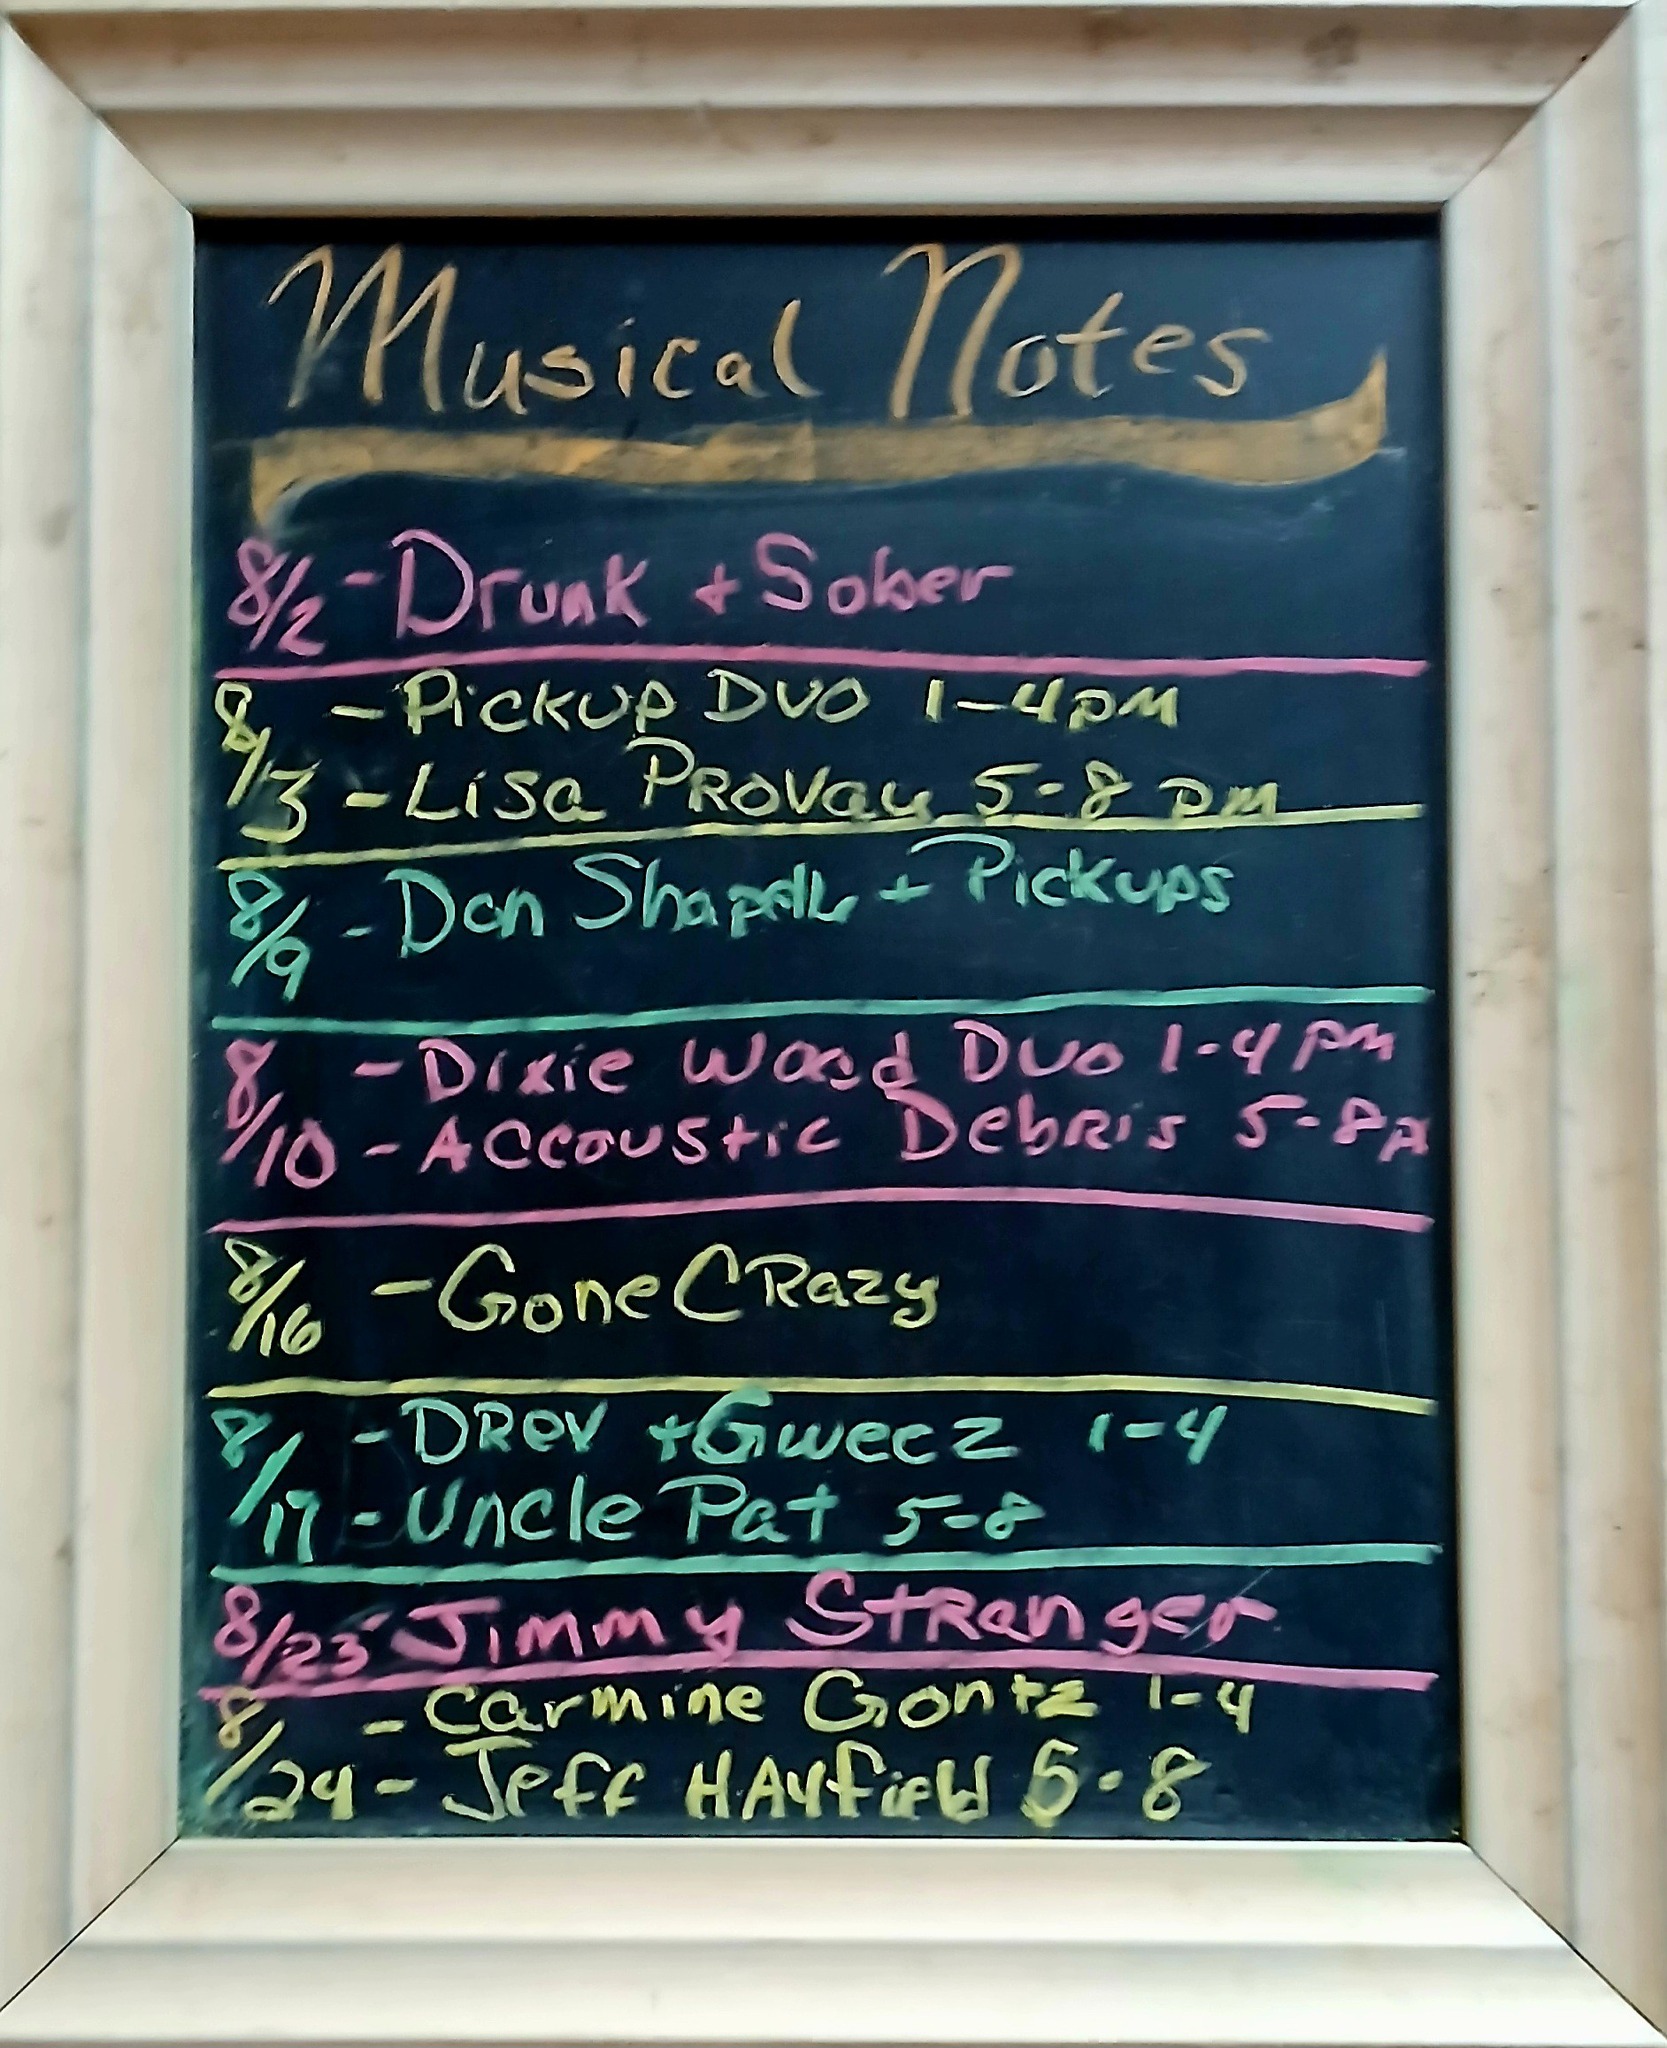 Musical Notes
8/2 - Drunk + Sober
8/3 - Pickup Duo 1-4pm
- Lisa Provau 5-8 pm
8/9 - Dan Shapelle + Pickups
8/10 - Dixie Wood Duo 1-4 pm
- Accoustic Debris 5-8p
8/16 - Gone Crazy
8/17 - Drev + Gwecz 1-4
- Uncle Pat 5-8
8/23 - Jimmy Stranger
8/24 - Carmine Gontz 1-4
- Jeff Hayfield 5-8